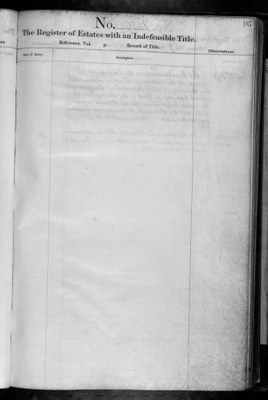 No.
The Register of Estates with an Indefeasible Title.
Reference, Vol. p. Record of Title.
Date of Entry.
Description.
Observations.